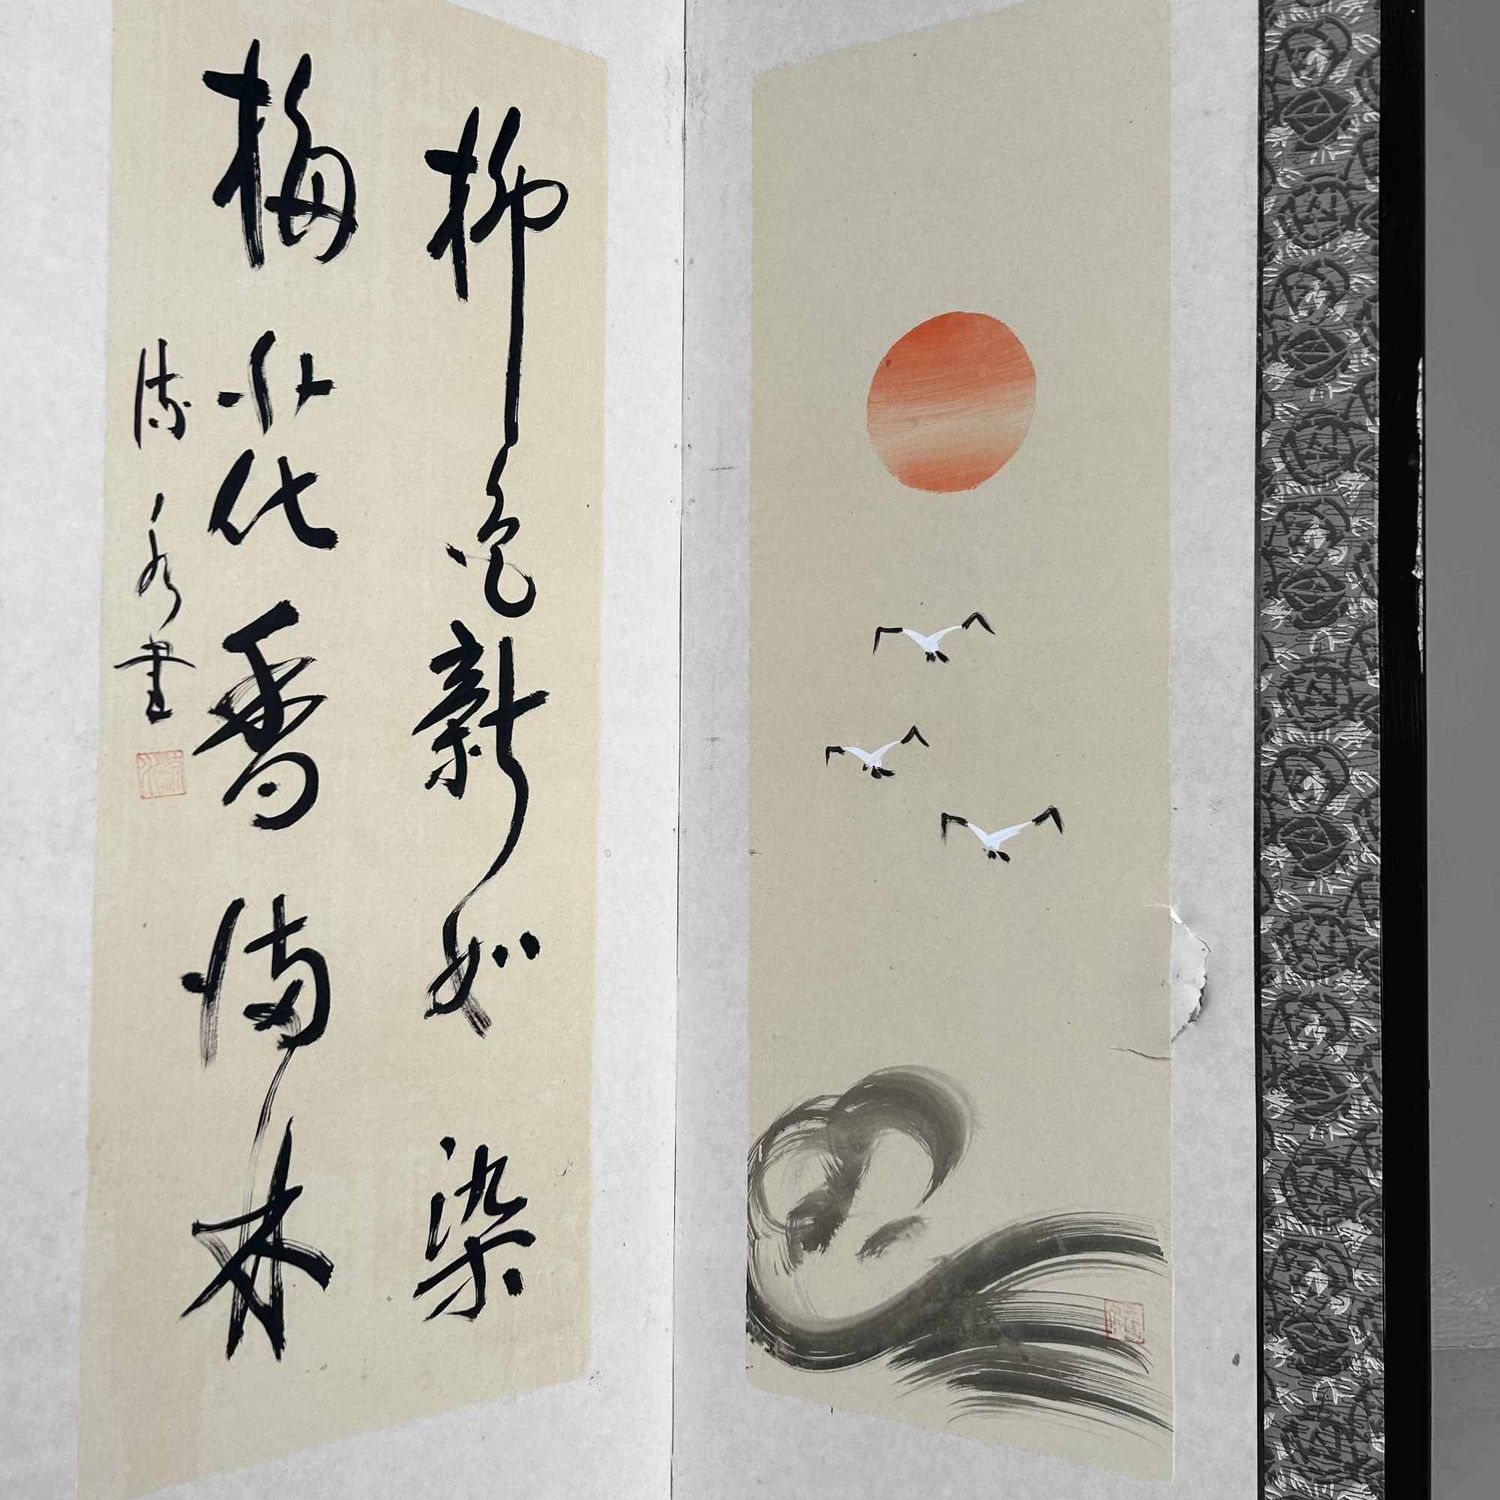 柳色新如染
梅花香满林
书